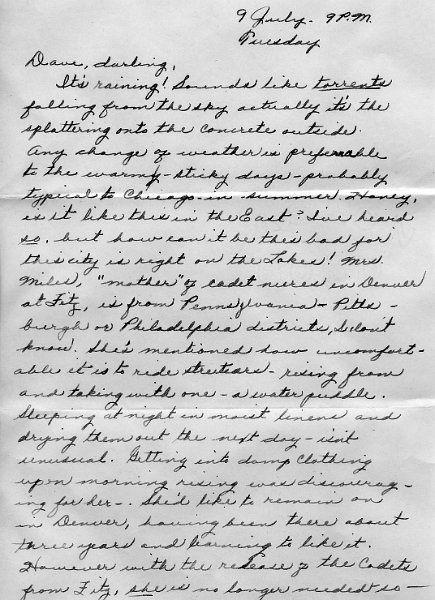 9 July - 9 P.M.
Tuesday
Dave, darling,
It's raining! Sounds like torrents
falling from the sky actually it's the
splattering onto the concrete outside.
Any change of weather is preferable
to the warmy-sticky days - probably
typical to Chicago - in summer. Honey,
is it like this in the East? I've heard
so, but how can it be this bad for
this city is right on the Lakes! Mrs.
Miles, "mother" of cadet nurses in Denver
at Fitz, is from Pennsylvania - Pitts-
burgh or Philadelphia districts, I don't
know. She's mentioned how uncomfort-
able it is to ride streetcars - rising from
and taking with one - a water puddle.
Sleeping at night in moist linens and
drying them out the next day - isn't
unusual. Getting into damp clothing
upon morning rising was discourag-
ing for her -. She'd like to remain on
in Denver, having been there about
three years and learning to like it.
However with the release of the Cadets
from Fitz, she is no longer needed so -